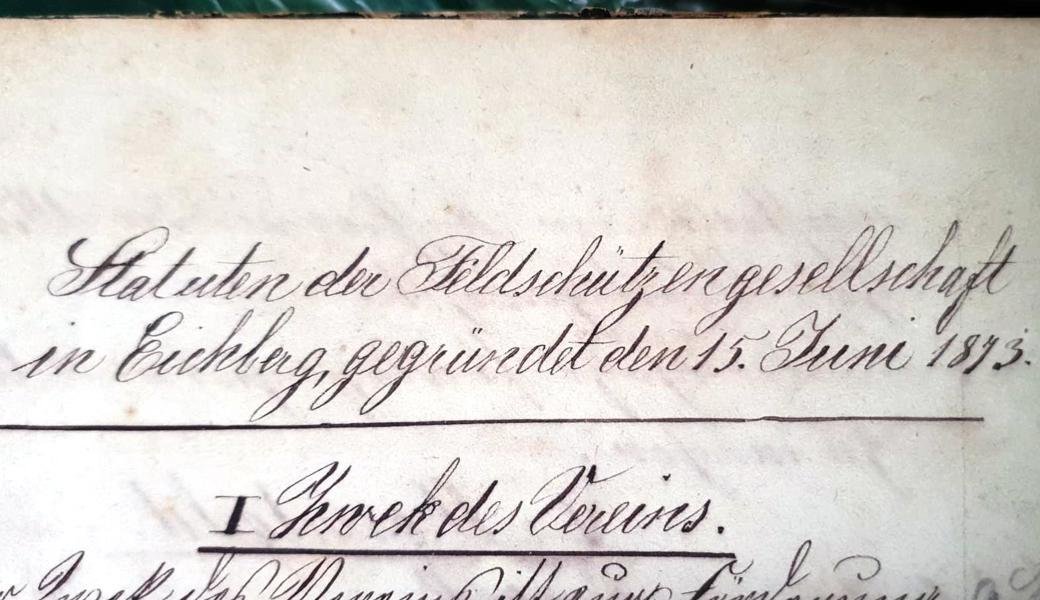 Statuten der Feldschützengesellschaft
in Eichberg, gegründet den 15. Juni 1873.
I Zwek des Vereins.
Zwek des Vereins ist